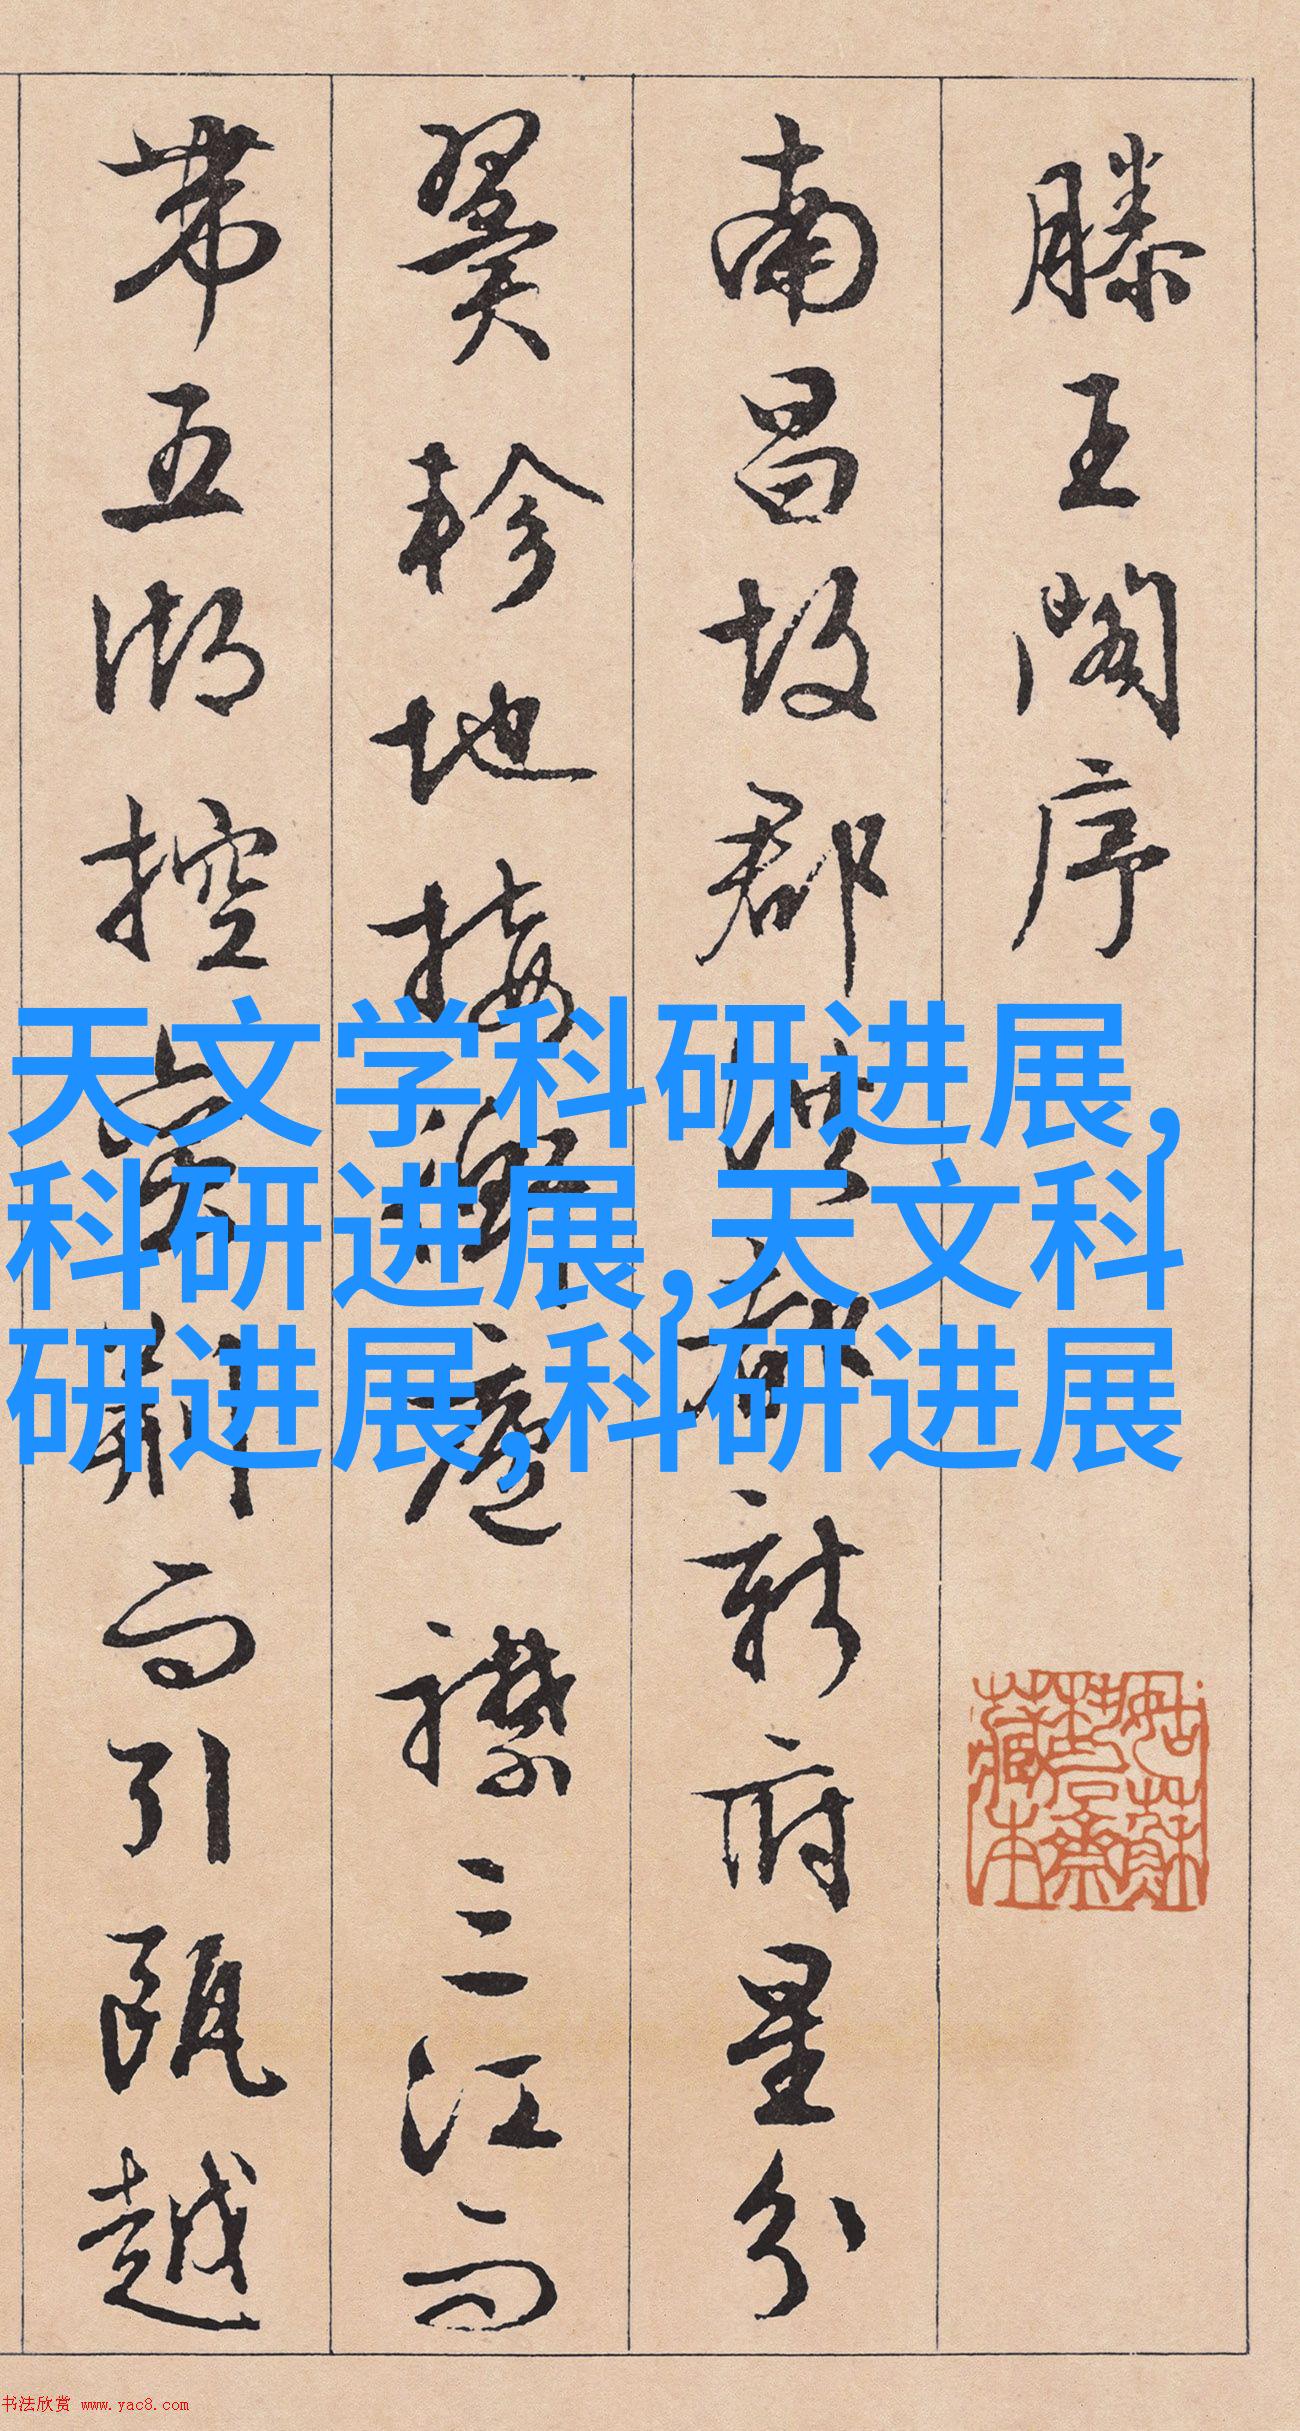 滕王閣序
南昌故郡洪都新府星分
翼軫地接衡廬襟三江而
帶五湖控蠻荊而引甌越
天文学科研进展,
科研进展,天文科
研进展,科研进展
姑蘇
齋
藏本
书法欣赏 www.yac8.com